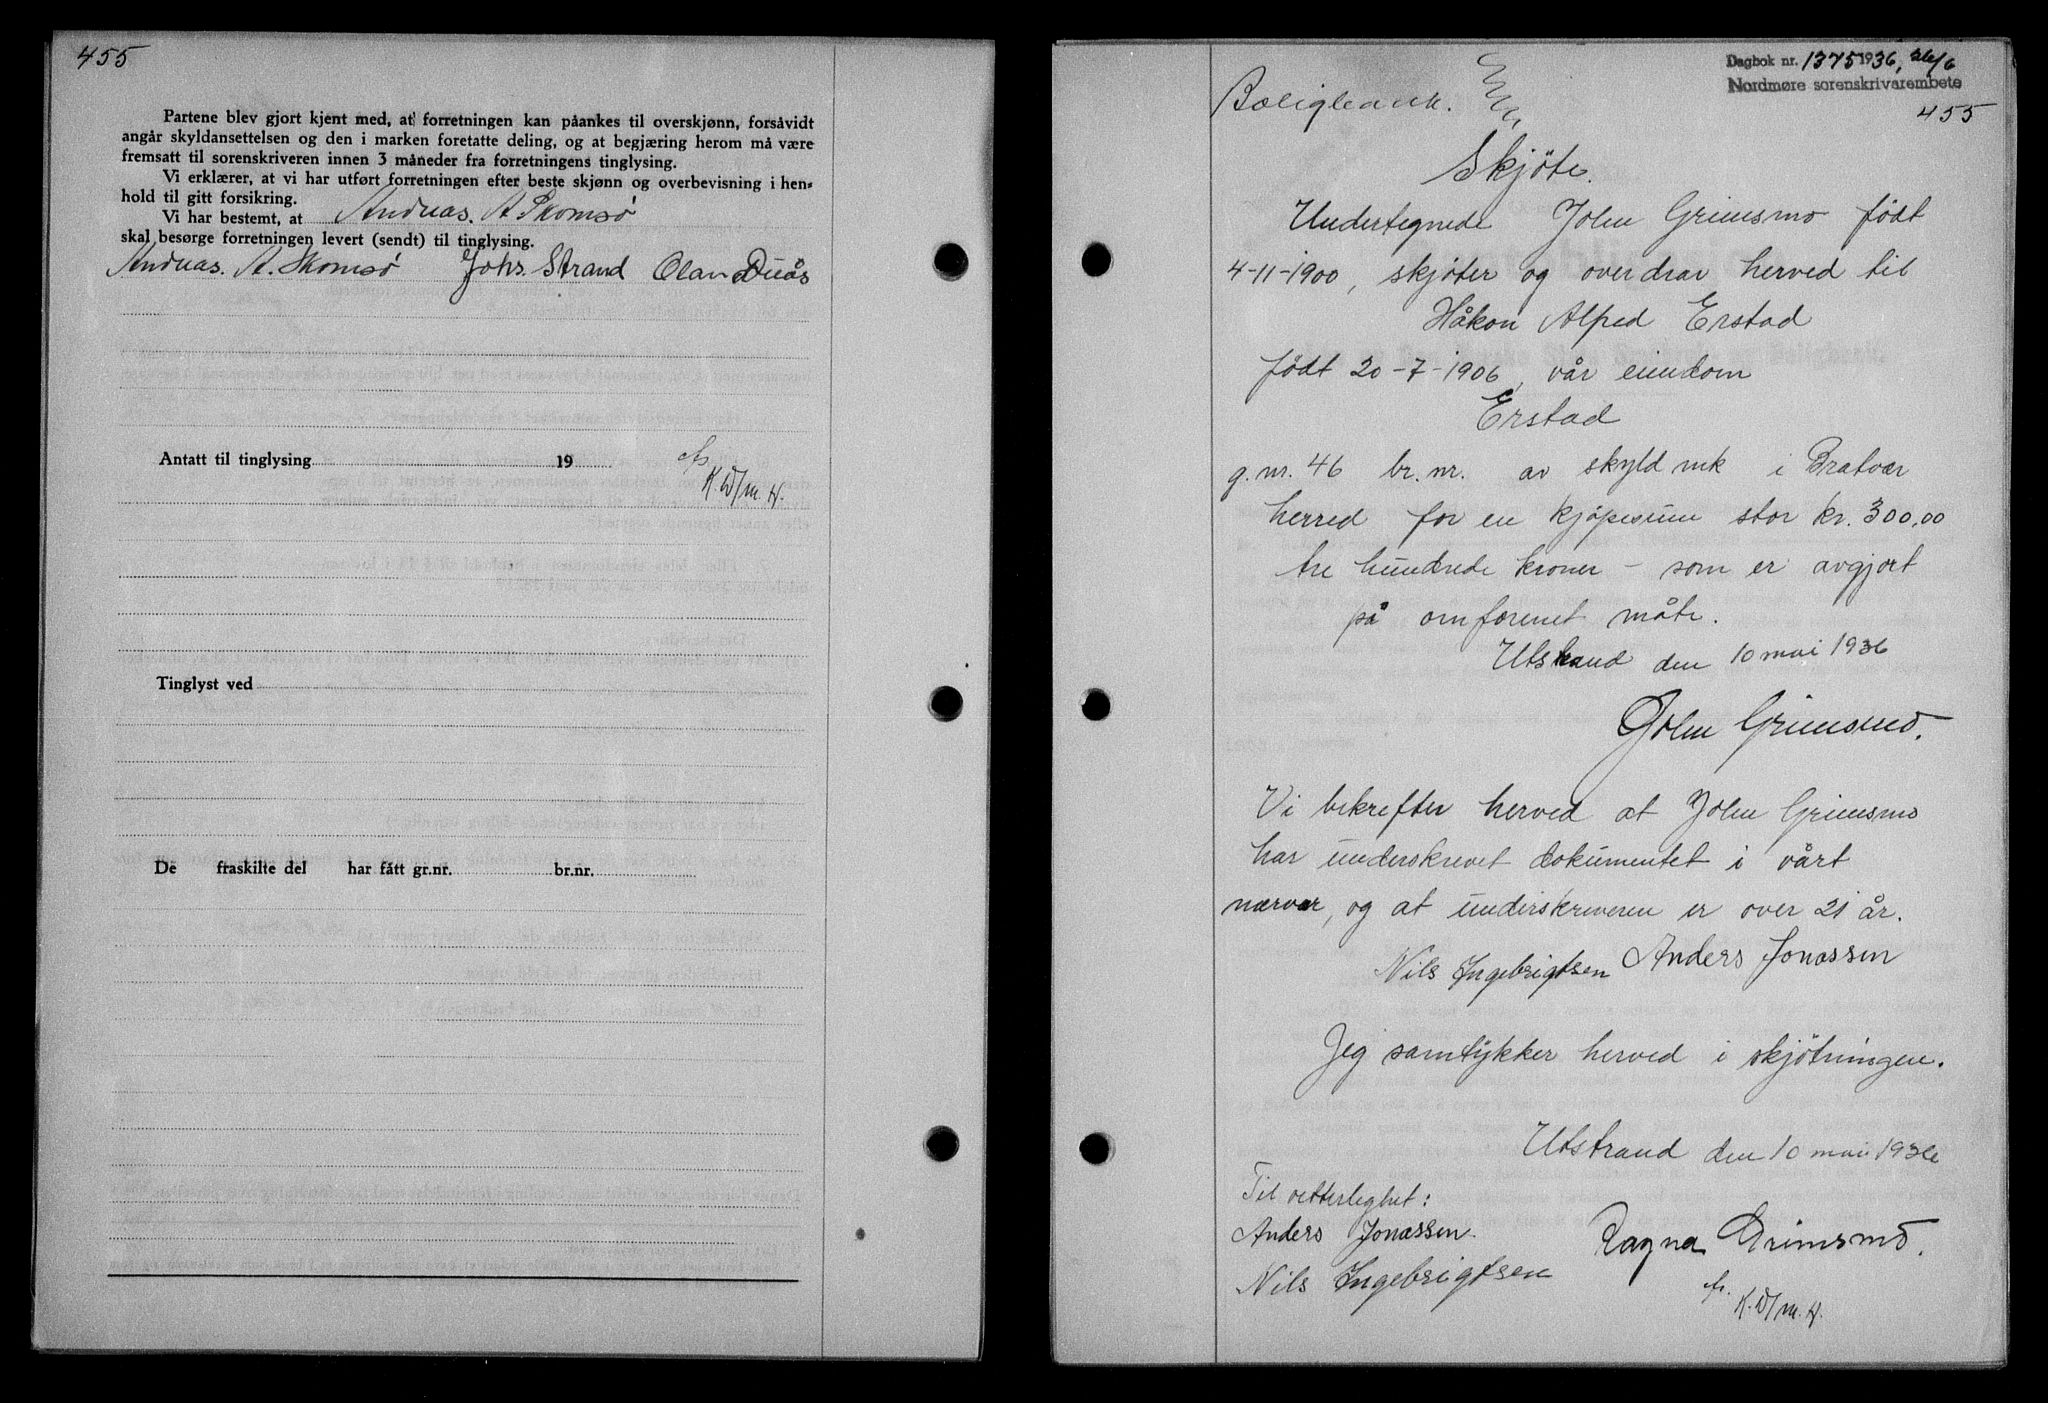 455
Partene blev gjort kjent med, at forretningen kan påankes til overskjønn, forsåvidt
angår skyldansettelsen og den i marken foretatte deling, og at begjæring herom må være
fremsatt til sorenskriveren innen 3 måneder fra forretningens tinglysing.
Vi erklærer, at vi har utført forretningen efter beste skjønn og overbevisning i hen=
hold til gitt forsikring.
Vi har bestemt, at Andreas. A Skomsø
skal besørge forretningen levert (sendt) til tinglysing.
Andreas. A. Skomsø Johs. Strand Olav Duås
Antatt til tinglysing 19
K.W/m.H.
Tinglyst ved
De fraskilte del har fått gr.nr. br.nr.
Dagbok nr. 1375 1936, 26/6
Nordmøre sorenskrivarembete
Boligbank.
455
Skjöte.
Undertegnede John Grimsmo født
4-11-1900, skjøter og overdrar herved til
Håkon Alfred Erstad
født 20-7-1906, vår eiendom
Erstad
g.nr. 46 br.nr. av skyld mk i Bratvær
herred for en kjøpesum stor kr. 300,00
tre hundrede kroner - som er avgjort
på omforenet måte.
Utstrand den 10 mai 1936
John Grimsmo.
Vi bekrefter herved at John Grimsmo
har underskrevet dokumentet i vårt
nærvær, og at underskriveren er over 21 år.
Nils Ingebrigtsen Anders Jonassen
Jeg samtykker herved i skjötningen.
Utstrand den 10 mai 1936
Til vitterlighet:
Anders Jonassen. Ragna Grimsmo.
Nils Ingebrigtsen
K.W/m.H.